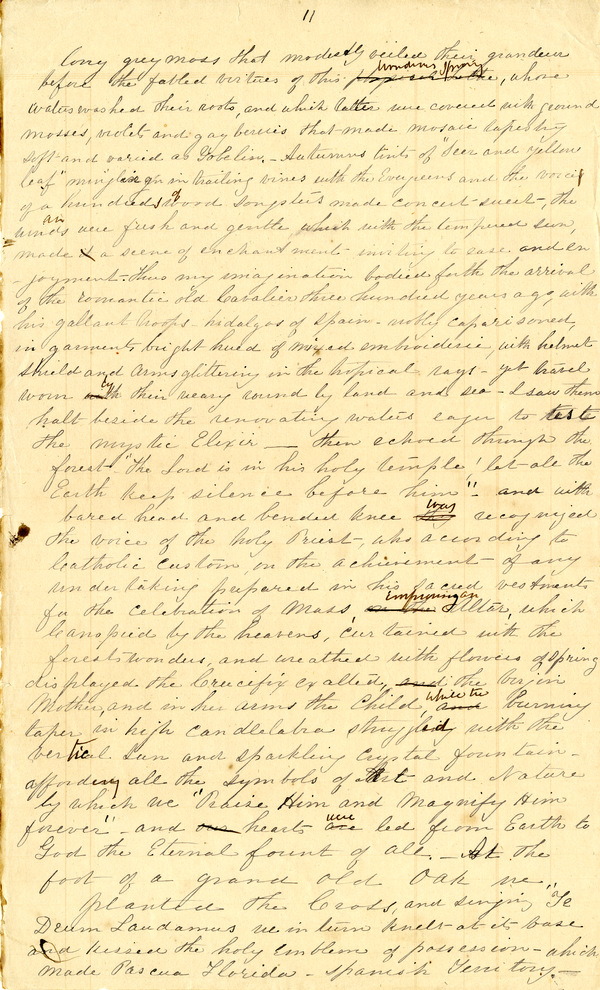 11
long grey moss that modestly veiled their grandeur
before the fabled virtues of this wondrous spring, whose
waters washed their roots, and which latter were covered with ground
mosses, violets and gay berries that made mosaic tapestry
soft and varied as Gobelin. - Autumns tints of "Seer and yellow
leaf" mingling in trailing vines with the Evergreens and the voices
of a hundreds of wood songsters made concert sweet, the
winds were fresh and gentle, which with the tempered sun,
made a scene of enchantment inviting to ease and en
- joyment - thus my imagination bodied forth the arrival
of the romantic old Cavalier three hundred years ago, with
his gallant troops - hidalgos of Spain - nobly caparisoned,
in garments bright hued of mixed embroiderie, with helmet
shield and arms glittering in the tropical rays - yet travel
worn by their weary round by land and sea - I saw them
halt beside the renovating waters eager to teste
the mystic Elixir — then echoed through the
forest. "The Lord is in his holy temple! let all the
Earth keep silence before him" - and with
bared head and bended knee was recognized
the voice of the holy Priest, who according to
Catholic custom, on the achievement of any
undertaking prepared in his sacred vestments
for the celebration of Mass, Improvising an Altar, which
Canopied by the heavens, curtained with the
forests wonders, and wreathed with flowers of spring
displayed the Crucifix exalted, the virgin
Mother, and in her arms the Child, while the burning
taper in high candelabra struggled with the
vertical Sun and sparkling crystal fountain -
affording all the symbols of Art and Nature
by which we "Praise Him and Magnify Him
forever" - and hearts were led from Earth to
God the Eternal fount of all. - At the
foot of a grand old Oak we
planted the Cross, and singing "Te
Deum Laudamus we in turn knelt at its base
and kissed the holy Emblem of possession - which
made Pascua Florida - Spanish Territory. —